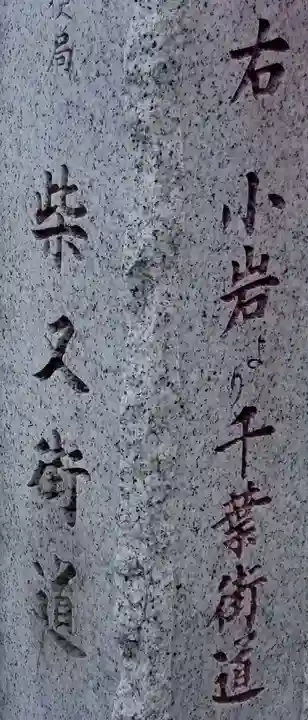 右 小岩より千葉街道
局
柴又街道